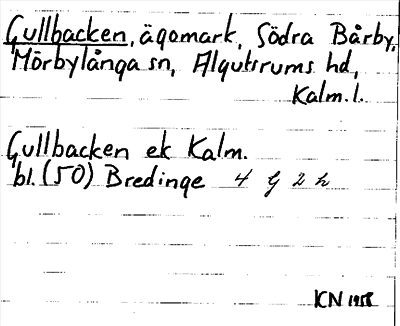 Gullbacken, ägomark, Södra Bårby,
Mörbylånga sn, Algutsrums hd,
Kalm. l.
Gullbacken ek Kalm.
bl. (50) Bredinge 4 G 2 h
KN 1958